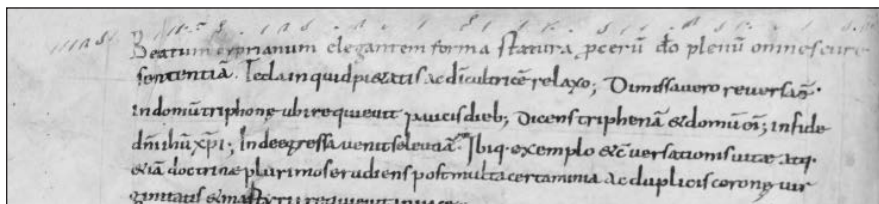 Beatum cyprianum elegantem forma statura ꝓcerū do plenū omnes cure
sententiā. Tecla inquid pietatis ac dī cultricē relaxo; Dimissa vero reversa ÷
in domū triphonę ubi requievit paucis dieb; Dicens tripheniā & domū oī; in fide
dn̄i ihū xp̄i; Inde egressa venit seleutiā. Ibiq· exemplo & cversationis vitae atq·
& iā doctrinę plurimos erudiens post multa certamina ac duplicis coronę vir
ginitatis & martyrii requievit in